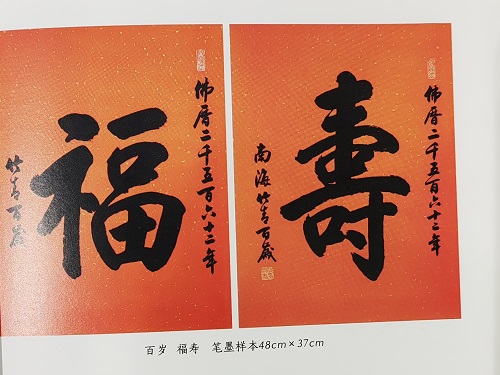 佛曆二千五百六十二年
福
竹青百歲
佛曆二千五百六十二年
壽
南海竹青百歲
百岁 福寿 笔墨样本48cm×37cm